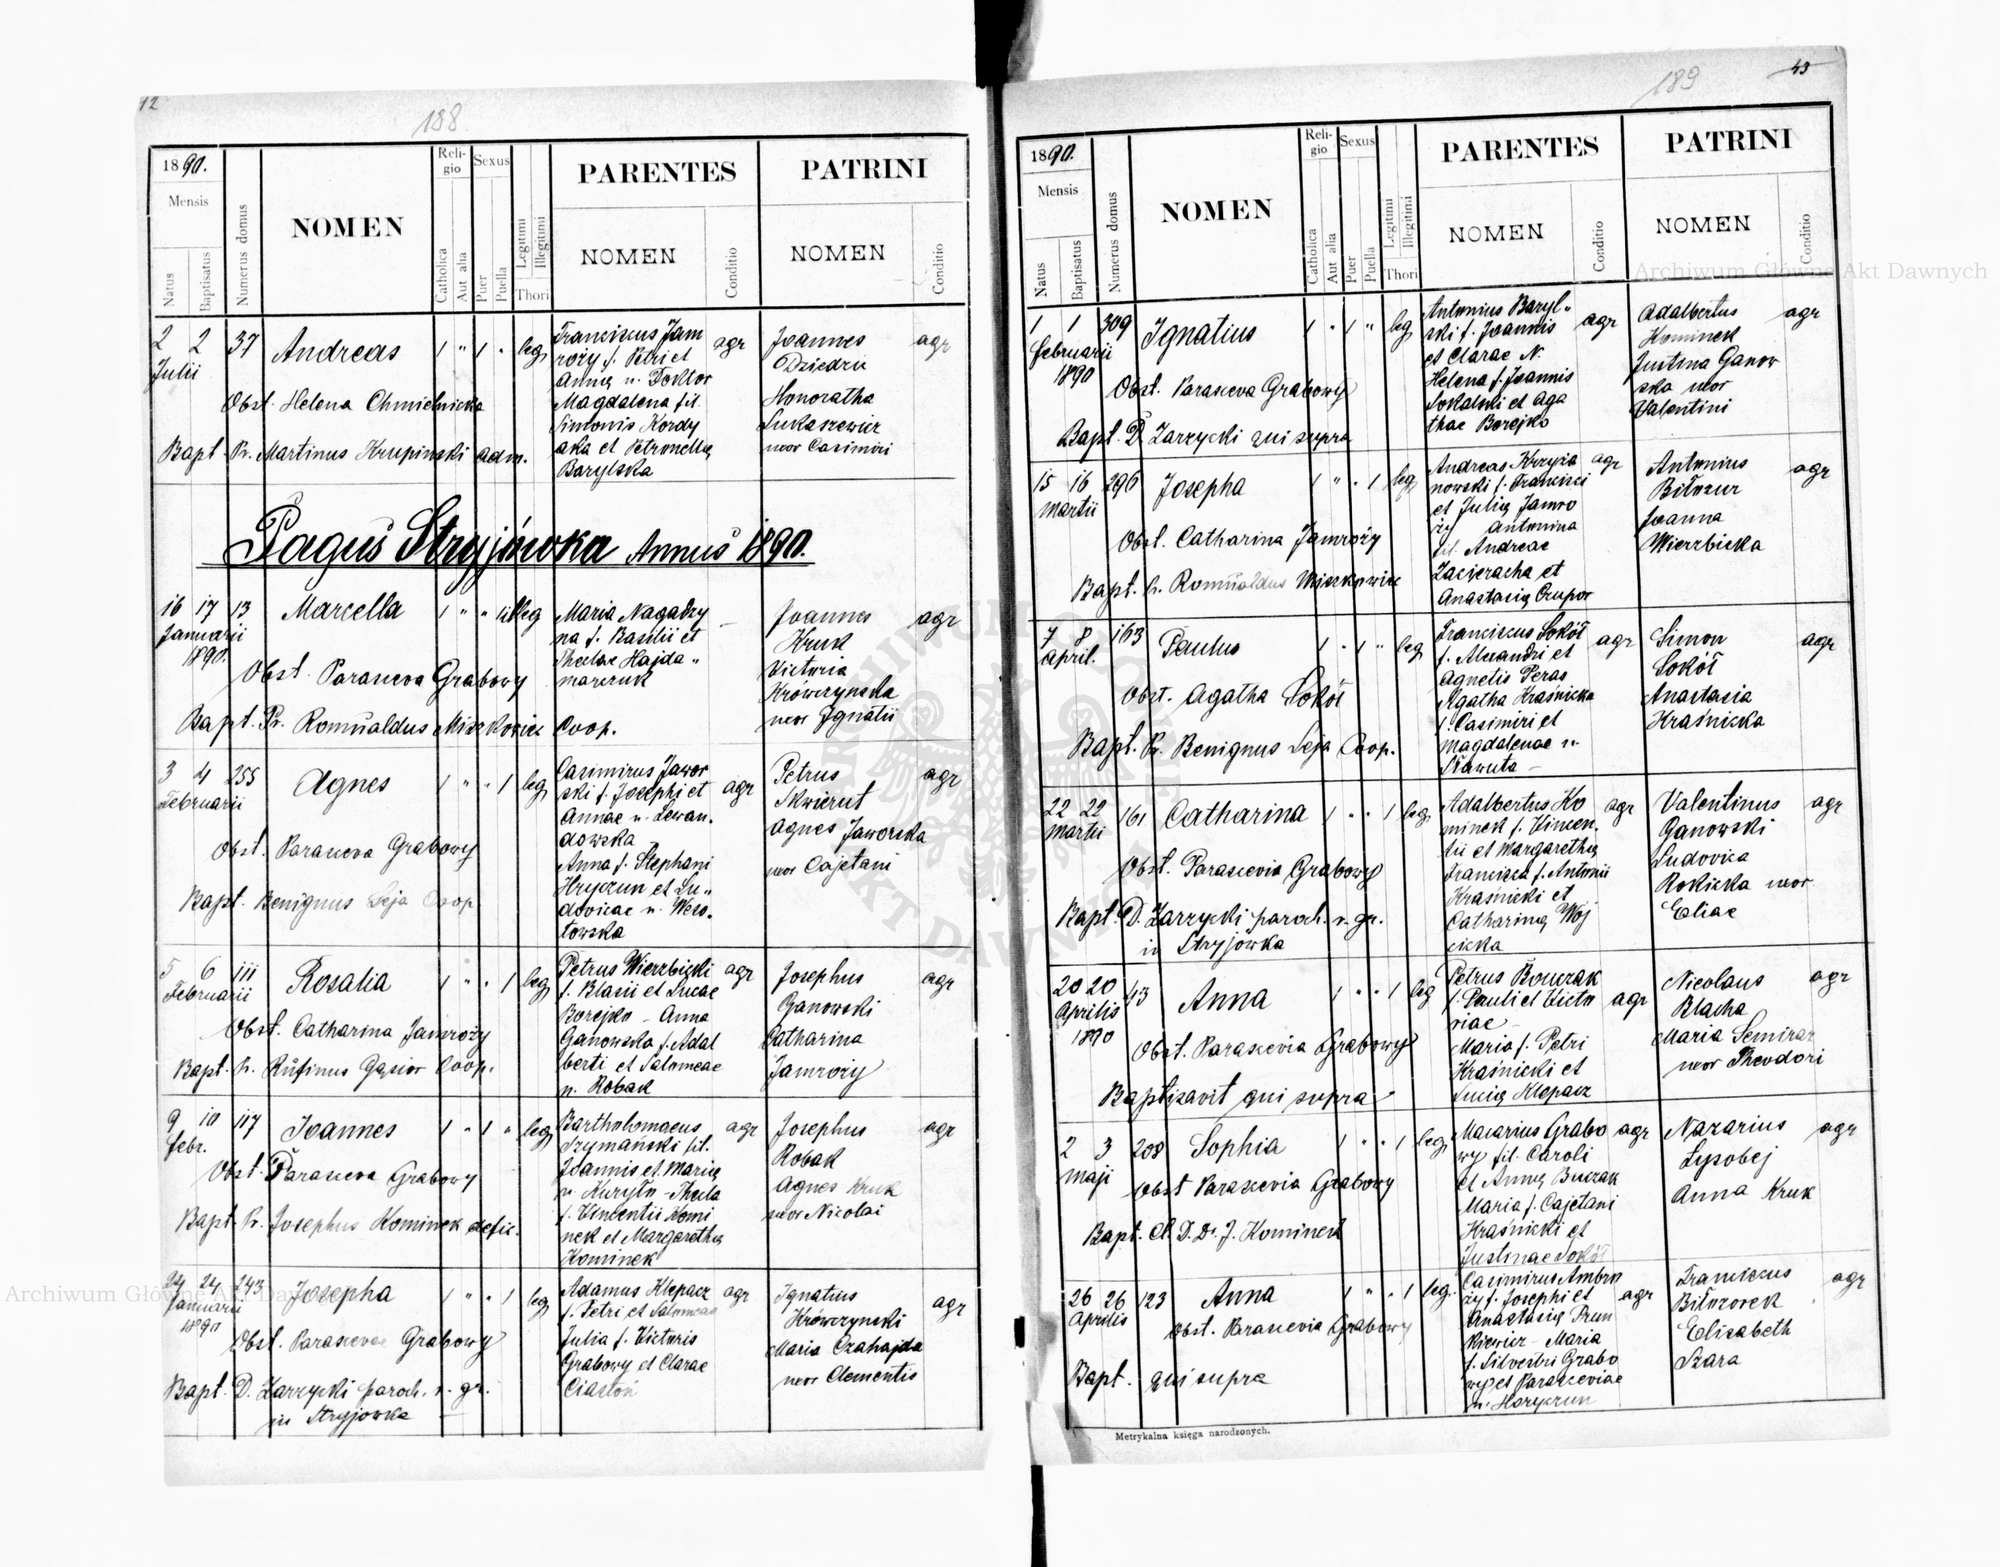 12
188
1890.
Mensis
Natus
Baptisatus
Numerus domus
NOMEN
Religio
Catholica
Aut alia
Sexus
Puer
Puella
Legitimi
Illegitimi
Thori
PARENTES
NOMEN
Conditio
PATRINI
NOMEN
Conditio
2 2 37 Andreas 1 " 1 " leg
Julii
Obst. Helena Chmielnicka
Bapt. Pr. Martinus Krupinski adm.
Franciscus Jam agr
roży f. Petri et
Annę n. Doktor
Magdalena fil.
Simonis Kordy
aka et Petronellę
Barylska
Joannes agr
Dziedzic
Honoratha
Łukaszewicz
uxor Casimiri
Pagus Stryjówka Annus 1890.
16 17 13 Marcella 1 " " 1 illeg
Januarii
1890.
Obst. Parasceva Grabowy
Bapt. Pr. Romualdus Miszkowicz Coop.
Maria Nagadzy
na f. Basilii et
Theclae Hajda"
marczuk
Joannes agr
Kruk
Victoria
Krówczynska
uxor Ignatii
3 4 255 Agnes 1 " " 1 leg
Februarii
Obst. Parasceva Grabowy
Bapt. Benignus Seja Coop
Casimirus Jawor
ski f. Josephi et agr
Annae n. Lewan.
dowska
Anna f. Stephani
Hryczun et Lu"
dovicae n. Weso.
łowska
Petrus agr
Skwierut
Agnes Jaworska
uxor Cajetani
5 6 111 Rosalia 1 " " 1 leg
Februarii
Obst. Catharina Jamroży
Bapt. Pr. Rufinus Gąsior Coop.
Petrus Wierzbicki agr
f. Blasii et Lucae
Borejko - Anna
Ganowska f. Adal
berti et Salomeae
n. Robak
Josephus agr
Ganowski
Catharina
Jamroży
9 10 117 Joannes 1 " 1 " leg
Febr.
Obst. Parasceva Grabowy
Bapt. Pr. Josephus Kominek defic.
Bartholomaeus agr
Szymański fil.
Joannis et Marię
n. Kuryło - Thecla
f. Vincentii Komi
nek et Margarethę
Kominek
Josephus agr
Robak
Agnes Kruk
uxor Nicolai
24 24 243 Josepha 1 " " 1 leg
Januarii
1890
Obst. Parascevae Grabowy
Bapt. D. Zarzycki paroch. r. gr.
in Stryjowka
Adamus Klepacz agr
f. Petri et Salomeae
Julia f. Victoris
Grabowy et Clarae
Ciastoń
Ignatius agr
Krówczynski
Maria Czahajda
uxor Clementis
189
43
1890.
Mensis
Natus
Baptisatus
Numerus domus
NOMEN
Religio
Catholica
Aut alia
Sexus
Puer
Puella
Legitimi
Illegitimi
Thori
PARENTES
NOMEN
Conditio
PATRINI
NOMEN
Conditio
1 1 309 Ignatius 1 " 1 " leg
Februarii
1890
Obst. Parasceva Grabowy
Bapt. D. Zarzycki qui supra
Antonius Baryl"
ski f. Joannis agr
et Clarae N.
Helena f. Joannis
Sokalski et Aga
thae Borejko
Adalbertus agr
Kominek
Justina Ganow
ska uxor
Valentini
15 16 296 Josepha 1 " " 1 leg
Martii
Obst. Catharina Jamroży
Bapt. Pr. Romualdus Miszkowicz
Andreas Krzyża agr
nowski f. Francisci
et Julię Jamro
ży Antonina
fil. Andreae
Zacieracha et
Anastasię Czupor
Antonius agr
Biłozur
Joanna
Wierzbicka
7 8 163 Paulus 1 " 1 " leg
April.
Obst. Agatha Sokół
Bapt. Pr. Benignus Seja Coop.
Franciscus Sokół agr
f. Alexandri et
Agnetis Peras
Agatha Kraśnicka
f. Casimiri et
Magdalenae n.
Sławuta -
Simon agr
Sokół
Anastasia
Kraśnicka
22 22 161 Catharina 1 " " 1 leg
Martii
Obst. Parascevia Grabowy
Bapt. D. Zarzycki paroch. r. gr.
in Stryjówka
Adalbertus Ko agr
minek f. Vincen.
tii et Margarethę
Francisca f. Antonii
Kraśnicki et
Catharinę Woj
cicka
Valentinus agr
Ganowski
Ludovica
Rokicka uxor
Eliae
20 20 43 Anna 1 " " 1 leg
Aprilis
1890
Obst. Parascevia Grabowy
Baptizavit qui supra
Petrus Bouczak
f. Pauli et Victo agr
riae
Maria f. Petri
Kraśnicki et
Lucię Klepacz
Nicolaus agr
Blacha
Maria Semiraz
uxor Theodori
2 3 208 Sophia 1 " " 1 leg
Maji
Obst Parascevia Grabowy
Bapt. Cl. D. Dr. J. Kominek
Macarius Grabo agr
wy fil. Caroli
et Annę Buczak
Maria f. Cajetani
Kraśnicki et
Justinae Sokół
Nazarius agr
Łysobej
Anna Kruk
26 26 123 Anna 1 " " 1 leg.
Aprilis
Obst. Parascevia Grabowy
Bapt. qui supra
Casimirus Ambro
ży f. Josephi et agr
Anastasię Prun
kiewicz - Maria
f. Silvestri Grabo
wy et Parasceviae
n. Horyczun
Franciscus agr
Biłozorek
Elisabeth
Szara
Metrykalna księga narodzonych.
Archiwum Główne Akt Dawnych
Archiwum Główne Akt Dawnych